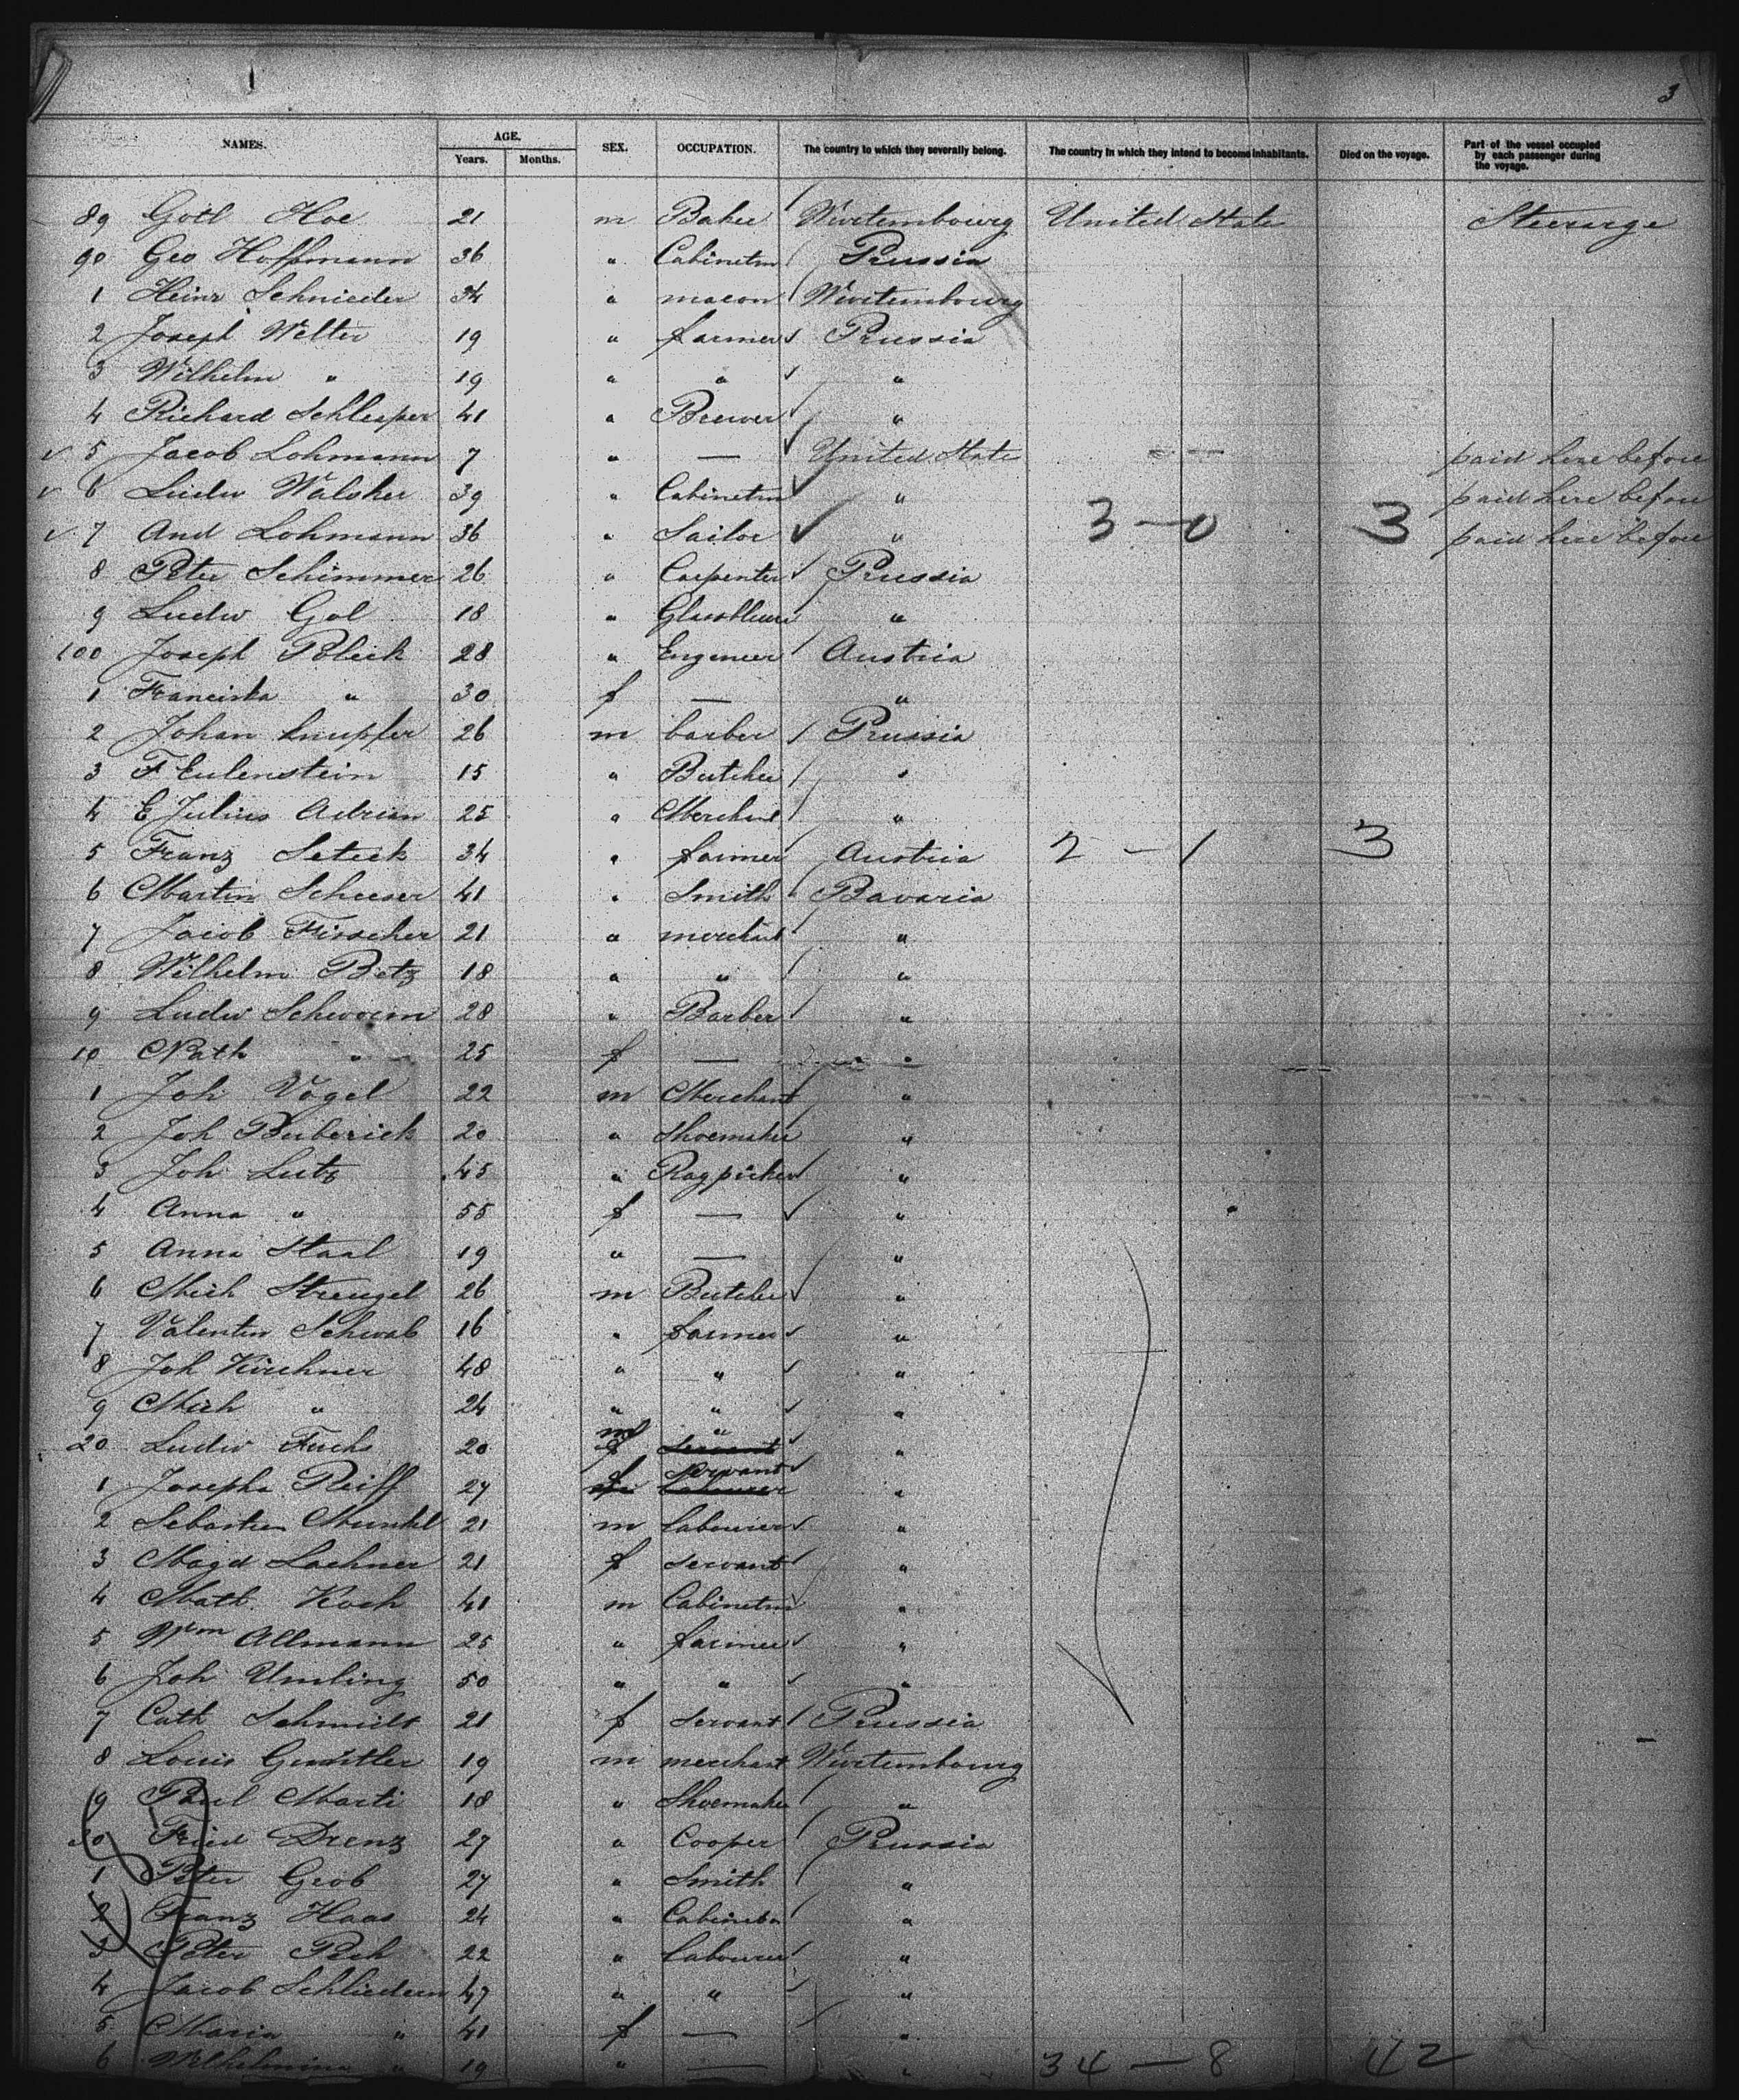 3
NAMES. AGE. Years. Months. SEX. OCCUPATION. The country to which they severally belong. The country in which they intend to become inhabitants. Died on the voyage. Part of the vessel occupied by each passenger during the voyage.
89 Gotl Hoe 21 m Baker Wurtembourg United State Steerage
90 Geo Hoffmann 36 " Cabinetm Prussia
1 Heinr Schnieder 34 " macon Wurtembourg
2 Joseph Welter 19 " farmer Prussia
3 Wilhelm " 19 " " "
4 Richard Schlesper 41 " Brewer "
5 Jacob Lohmann 7 " — United State paid here before
6 Ludw Walsher 39 " Cabinetm " paid here before
7 And Lohmann 36 " Sailor " 3 — 0 3 paid here before
8 Peter Schimmer 26 " Carpenter Prussia
9 Ludw Gol 18 " "
100 Joseph Poleck 28 " Engeneer Austria
1 Franciska " 30 f — "
2 Johan Knupfer 26 m barber Prussia
3 F Eulenstein 15 " Butcher "
4 E Julius Adrian 25 " Merchant "
5 Franz Seteck 34 " farmer Austria 2 — 1 3
6 Martin Scheeser 41 " Smith Bavaria
7 Jacob Fisscher 21 " merchant "
8 Wilhelm Betz 18 " " "
9 Ludw Schworm 28 " Barber "
10 Kath " 25 f — "
1 Joh Vogel 22 m Merchant "
2 Joh Buberick 20 " Shoemaker "
3 Joh Lutz 45 " Ragpicker "
4 Anna " 55 f — "
5 Anna Staal 19 " — "
6 Mich Strengel 26 m Butcher "
7 Valentin Schwab 16 " farmer "
8 Joh Kirchner 48 " " "
9 Mich " 24 " " "
20 Ludw Fuchs 20 m " "
1 Josepha Reiff 27 f Servant "
2 Sebastien Munkel 21 m labourer "
3 Magd Lachner 21 f servant "
4 Math. Koch 41 m Cabinetm "
5 Wm Allmann 25 " farmer "
6 Joh Umling 50 " " "
7 Cath Schmidt 21 f servant Prussia
8 Louis Gunttler 19 m merchant Wurtembourg
9 Paul Marti 18 " Shoemaker "
30 Fried Drenz 27 " Cooper Prussia
1 Peter Grob 27 " Smith "
2 Franz Haas 24 " "
3 Peter Pech 22 " labourer "
4 Jacob Schliedern 47 " " "
5 Maria " 41 f — "
6 Wilhelmina " 19 " — " 34 — 8 42